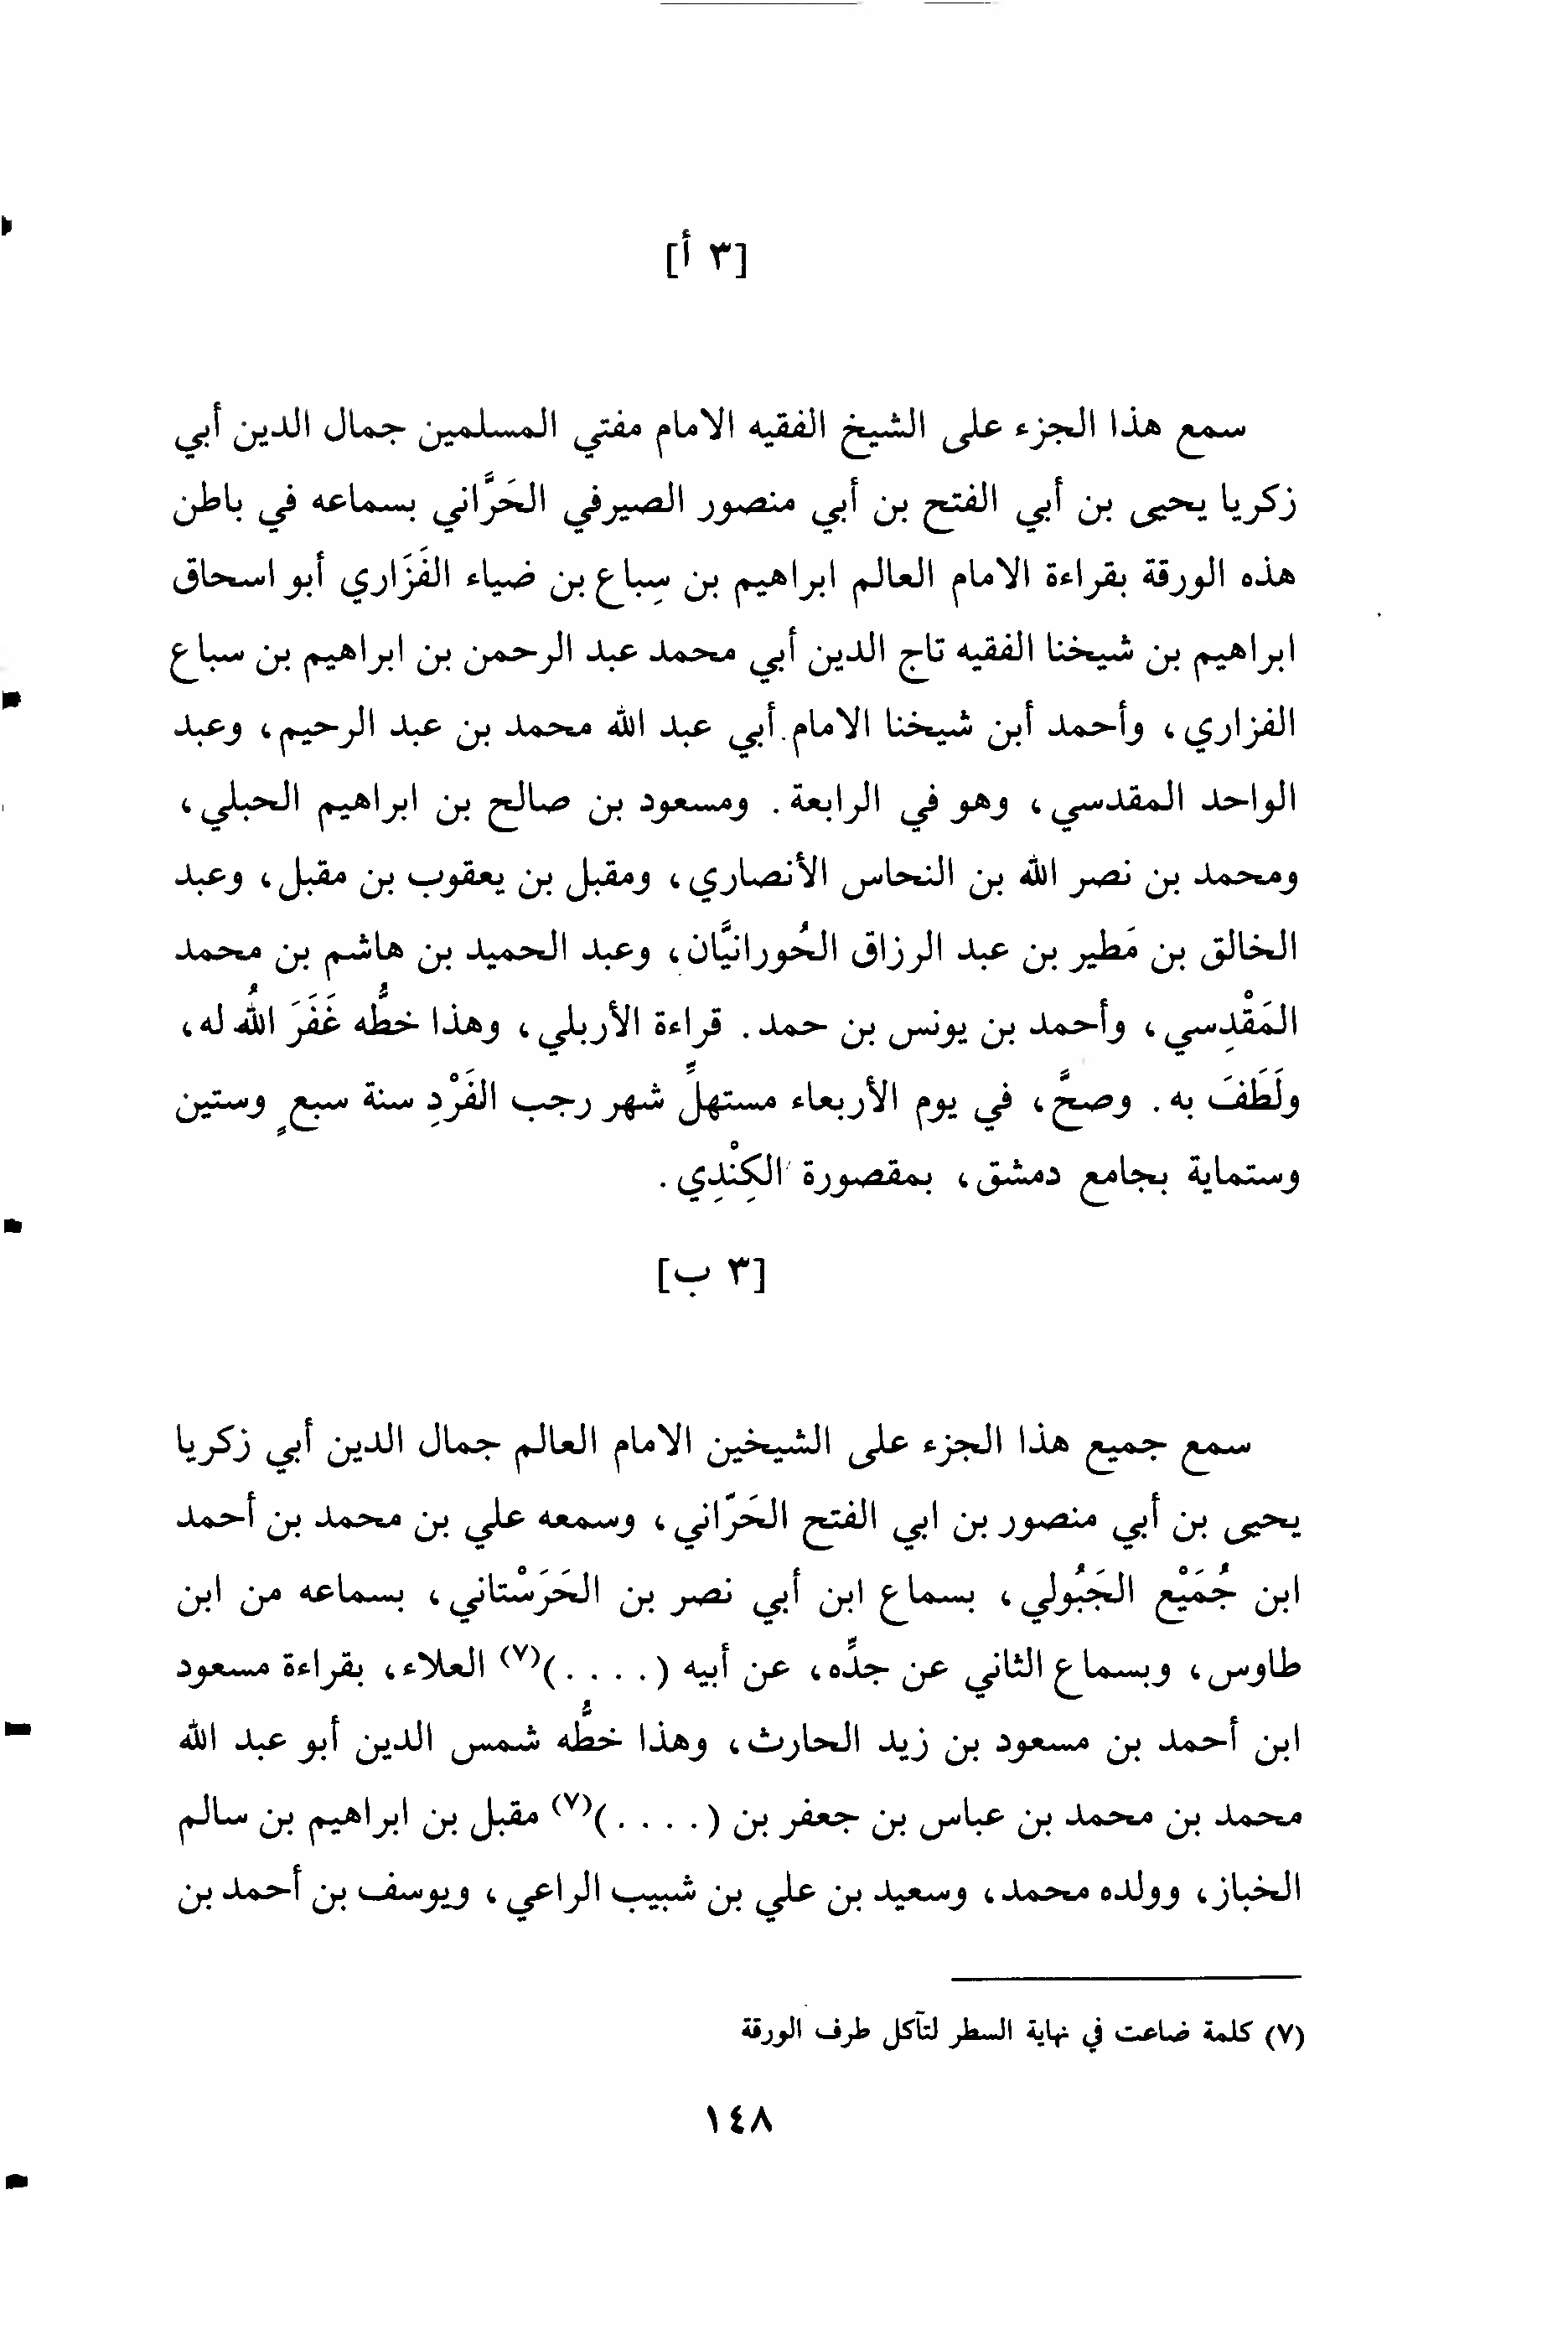 [٣ أ]
سمع هذا الجزء على الشيخ الفقيه الامام مفتي المسلمين جمال الدين أبي
زكريا يحيى بن أبي الفتح بن أبي منصور الصيرفي الحَرَّاني بسماعه في باطن
هذه الورقة بقراءة الامام العالم ابراهيم بن سِباع بن ضياء الفَزَاري أبو اسحاق
ابراهيم بن شيخنا الفقيه تاج الدين أبي محمد عبد الرحمن بن ابراهيم بن سباع
الفزاري، وأحمد أبن شيخنا الامام أبي عبد الله محمد بن عبد الرحيم، وعبد
الواحد المقدسي، وهو في الرابعة. ومسعود بن صالح بن ابراهيم الحبلي،
ومحمد بن نصر الله بن النحاس الأنصاري، ومقبل بن يعقوب بن مقبل، وعبد
الخالق بن مَطير بن عبد الرزاق الحُورانيَّان، وعبد الحميد بن هاشم بن محمد
المَقْدِسي، وأحمد بن يونس بن حمد. قراءة الأربلي، وهذا خطُّه غَفَرَ اللهُ له،
ولَطَفَ به. وصحَّ، في يوم الأربعاء مستهلِّ شهر رجب الفَرْدِ سنة سبعٍ وستين
وستماية بجامع دمشق، بمقصورة الكِنْدِي.
[٣ ب]
سمع جميع هذا الجزء على الشيخين الامام العالم جمال الدين أبي زكريا
يحيى بن أبي منصور بن ابي الفتح الحَرّاني، وسمعه علي بن محمد بن أحمد
ابن جُمَيْع الجَبُولي، بسماع ابن أبي نصر بن الحَرَسْتاني، بسماعه من ابن
طاوس، وبسماع الثاني عن جدِّه، عن أبيه (. . . .)(٧) العلاء، بقراءة مسعود
ابن أحمد بن مسعود بن زيد الحارث، وهذا خطُّه شمس الدين أبو عبد الله
محمد بن محمد بن عباس بن جعفر بن (. . . .)(٧) مقبل بن ابراهيم بن سالم
الخباز، وولده محمد، وسعيد بن علي بن شبيب الراعي، ويوسف بن أحمد بن
(٧) كلمة ضاعت في نهاية السطر لتآكل طرف الورقة
١٤٨